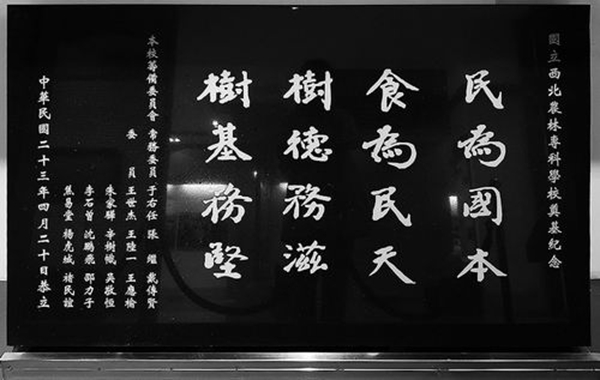 國立西北農林專科學校奠基紀念
民為國本
食為民天
樹德務滋
樹基務堅
本校籌備委員會 常務委員 于右任 張 繼 戴傳賢
委 員 王世杰 王陸一 王應榆
朱家驊 辛樹幟 吳敬恒
李石曾 沈鵬飛 邵力子
焦易堂 楊虎城 褚民誼
中華民國二十三年四月二十日恭立